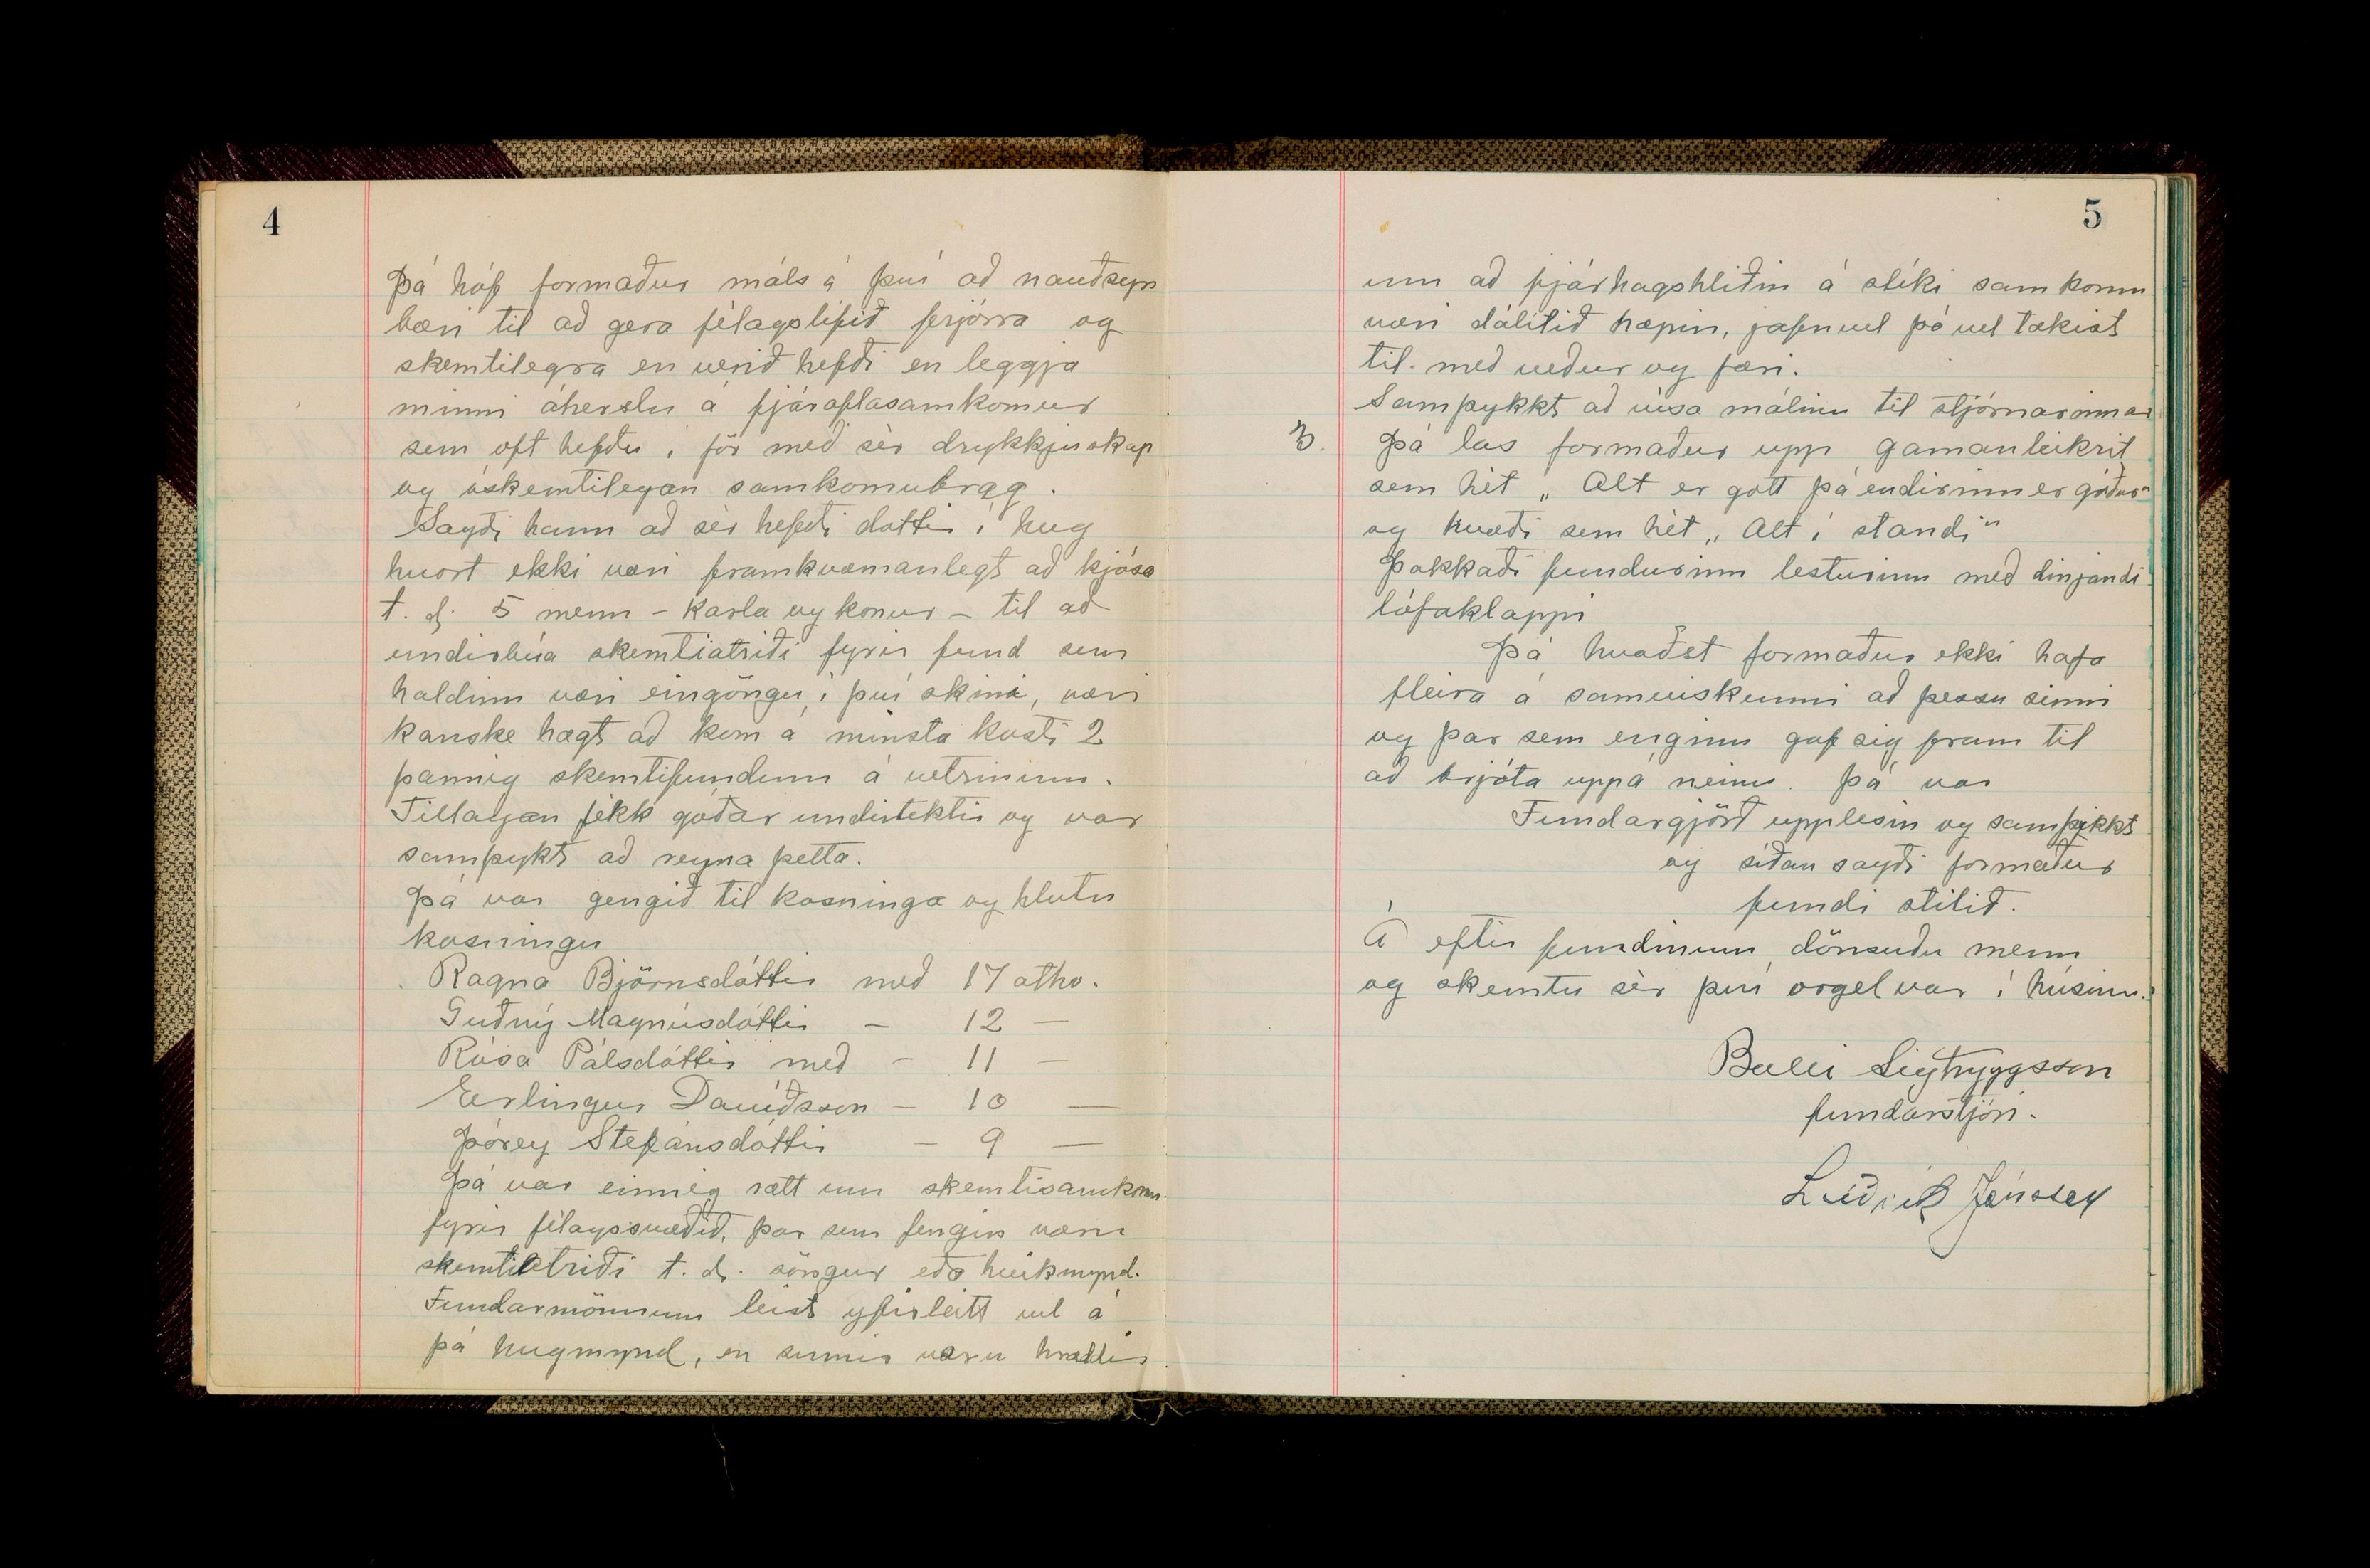 4
Þá hóf formaður máls á því að nauðsyn
bæri til að gera félagslífið frjórra og
skemtilegra en verið hefði en leggja
minni áherslu á fjáröflasamkomur
sem oft hefðu í för með sér drykkjuskap
og óskemtilegan samkomubrag.
Sagði hann að sér hefði dottið í hug
hvort ekki væri framkvæmanlegt að kjósa
t. d. 5 menn - karla og konur - til að
undirbúa skemtiatriði fyrir fund sem
haldinn væri eingöngu í því skini, væri
kanske hægt að kom á minsta kosti 2
þannig skemtifundum á vetrinum.
Tillagan fékk góðar undirtektir og var
samþykt að reyna þetta.
Þá var gengið til kosninga og hlutu
kosningu
Ragna Björnsdóttir með 17 atkv.
Guðný Magnúsdóttir - 12 -
Rósa Pálsdóttir með - 11 -
Erlingur Davíðsson - 10 -
Þórey Stefánsdóttir - 9 -
Þá var einnig rætt um skemtisamkom.
fyrir félagssvæðið, þar sem fengin væru
skemtiatriði t. d. söngur eða kvikmynd.
Fundarmönnum leist yfirleitt vel á
þá hugmynd, en sumir voru hræddir
5
um að fjárhagshliðin á slíkri samkomu
væri dálítið hæpin, jafnvel þó vel tækist
til með veður og færi.
Samþykkt að vísa málinu til stjórnarinnar
3. Þá las formaður upp gamanleikrit
sem hét „Alt er gott þá endirinn er góður"
og kvæði sem hét „Alt í standi"
Þakkaði fundurinn lesturinn með dinjandi
lófaklappi
Þá kvaðst formaður ekki hafa
fleira á samviskunni að þessu sinni
og þar sem enginn gaf sig fram til
að brjóta uppá neinu. Þá var
Fundargjörð upplesin og samþykkt
og síðan sagði formaður
fundi slitið.
Á eftir fundinum dönsuðu menn
og skemtu sér því orgel var í húsinu.
Baldi Sigtryggsson
fundarstjóri.
Lúðvík Jónsson